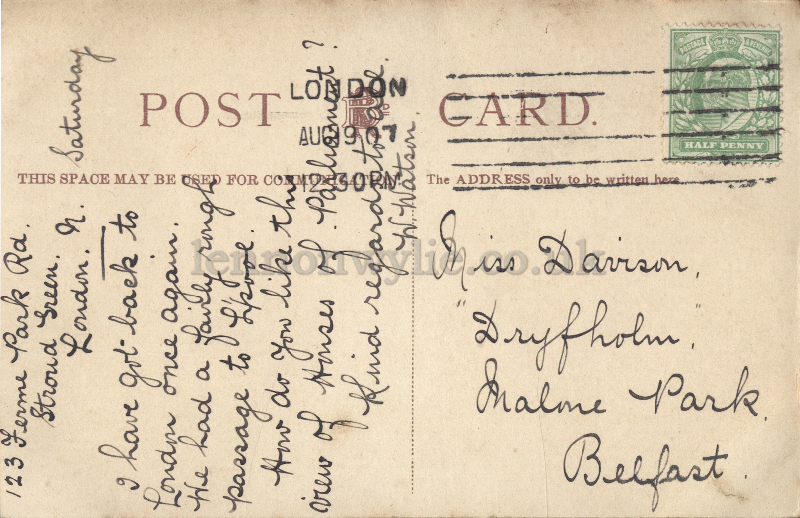 POST CARD.
THIS SPACE MAY BE USED FOR COMMUNICATION.
The ADDRESS only to be written here.
LONDON
AUG 19 07
12.30 PM
POSTAGE & REVENUE
HALF PENNY
123 Ferme Park Rd.
Stroud Green.
London. N.
Saturday
I have got back to
London once again.
We had a fairly rough
passage to L'pool.
How do you like this
view of Houses of Parliament?
Kind regards to all.
W Watson.
Miss Davison,
"Dryfholm,"
Malone Park.
Belfast.
lennonwylie.co.uk